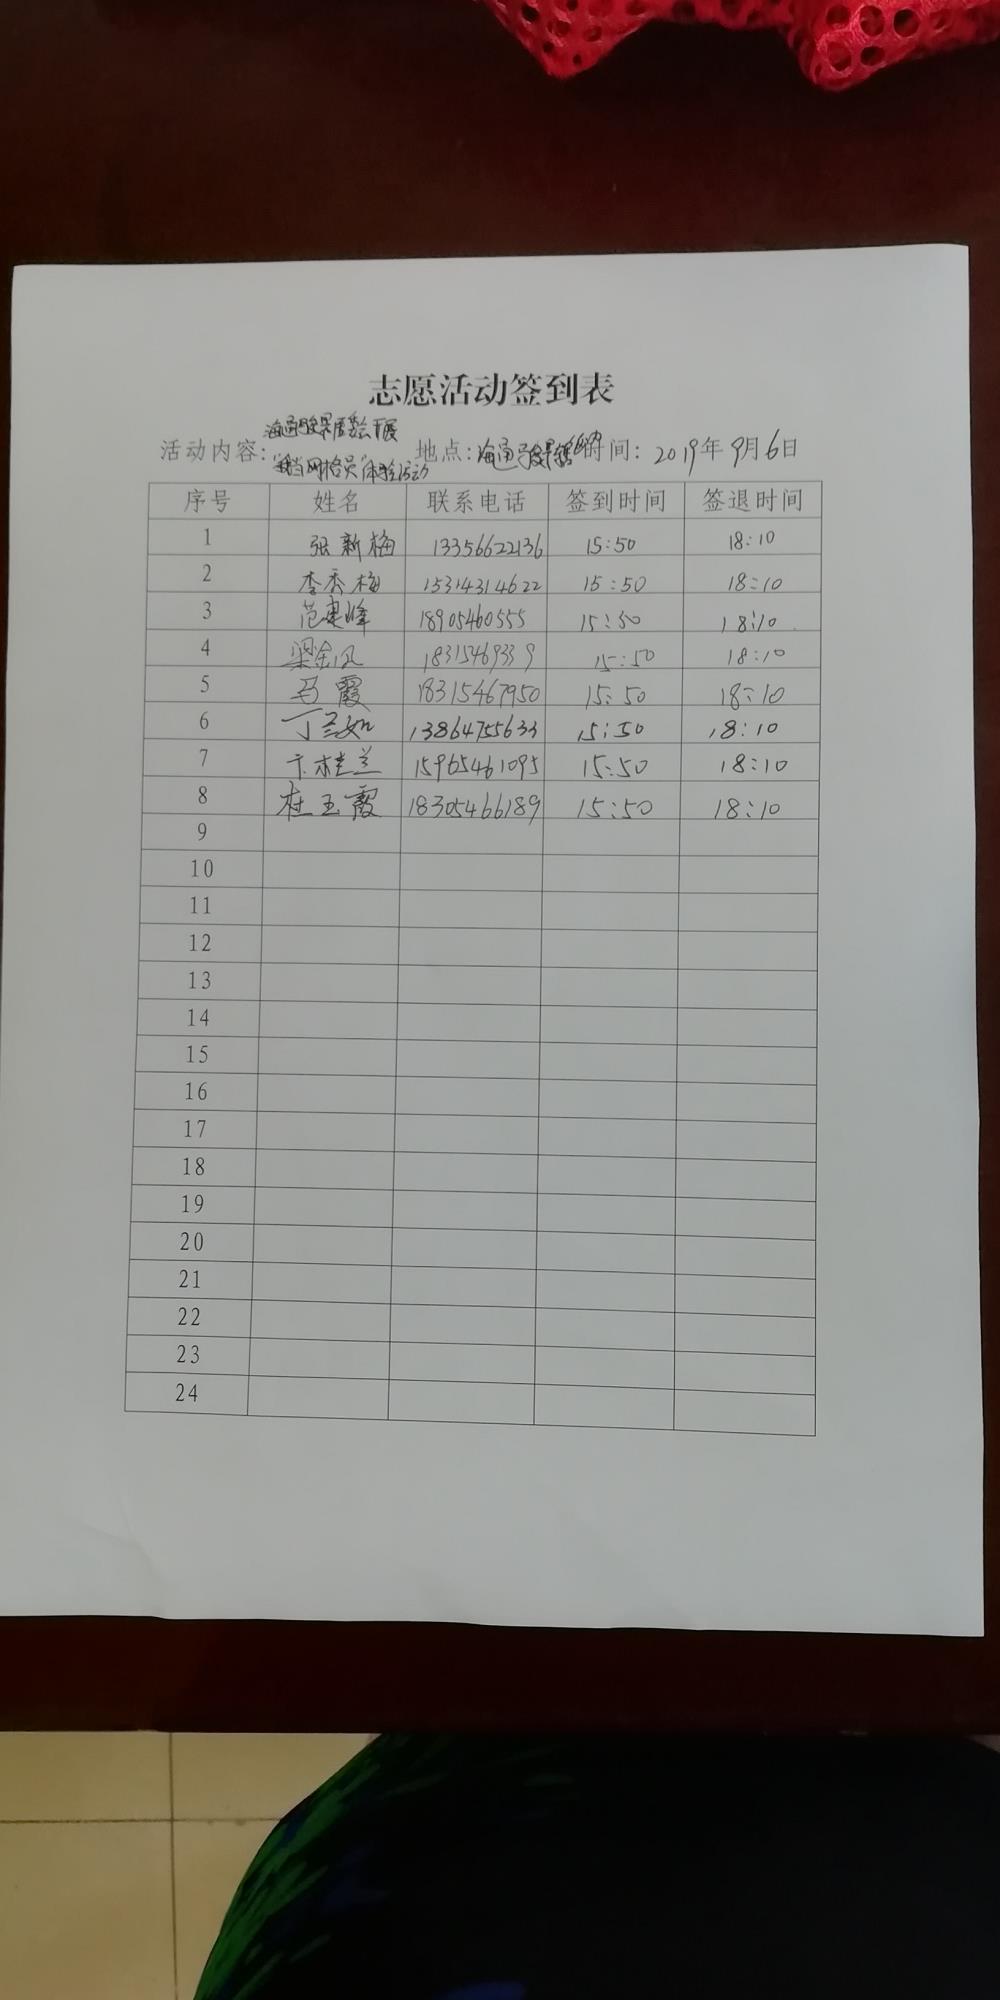 志愿活动签到表
海通骏景居委会开展
活动内容: 地点: 海通骏景 时间: 2019年9月6日
"我当网格员"体验活动
序号 姓名 联系电话 签到时间 签退时间
1 张新梅 13356622136 15:50 18:10
2 李秀梅 15314314622 15:50 18:10
3 范建峰 18905460555 15:50 18:10
4 梁金凤 18315469339 15:50 18:10
5 马霞 18315467950 15:50 18:10
6 丁 13864755633 15:50 18:10
7 卞桂兰 15965461095 15:50 18:10
8 杜玉霞 18305466189 15:50 18:10
9
10
11
12
13
14
15
16
17
18
19
20
21
22
23
24